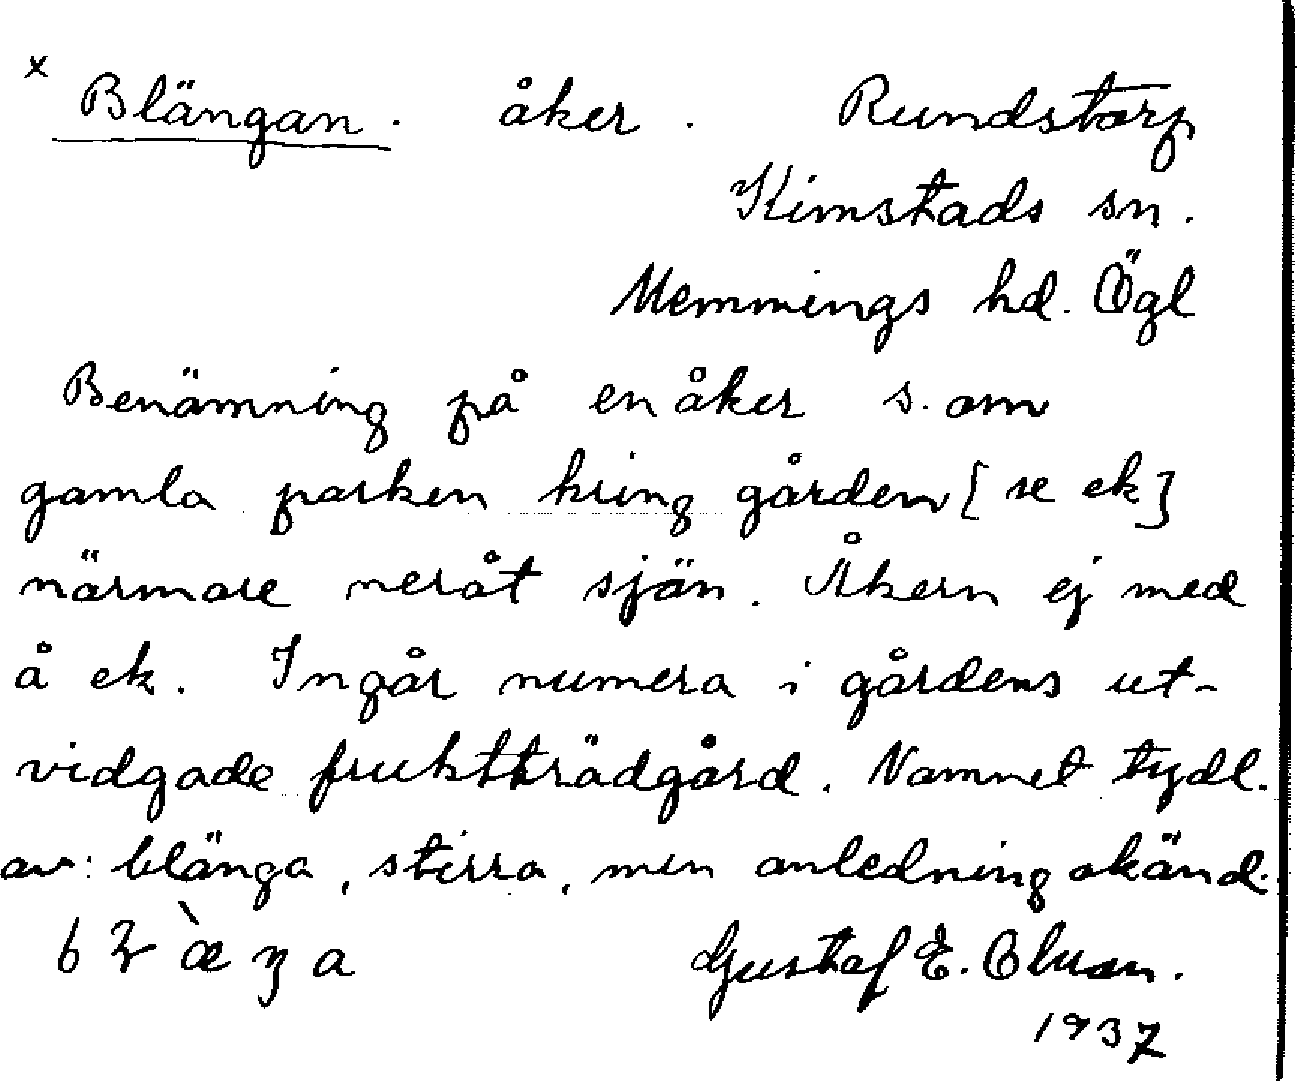 x Blängan. åker. Rundstorp
Kimstads sn.
Memmings hd. Ögl
Benämning på en åker s. om
gamla parken kring gården [se ek]
närmare neråt sjön. Åkern ej med
å ek. Ingår numera i gårdens ut-
vidgade fruktträdgård. Namnet tydl.
av: blänga, stirra, men anledning okänd.
Gustaf E.
1937